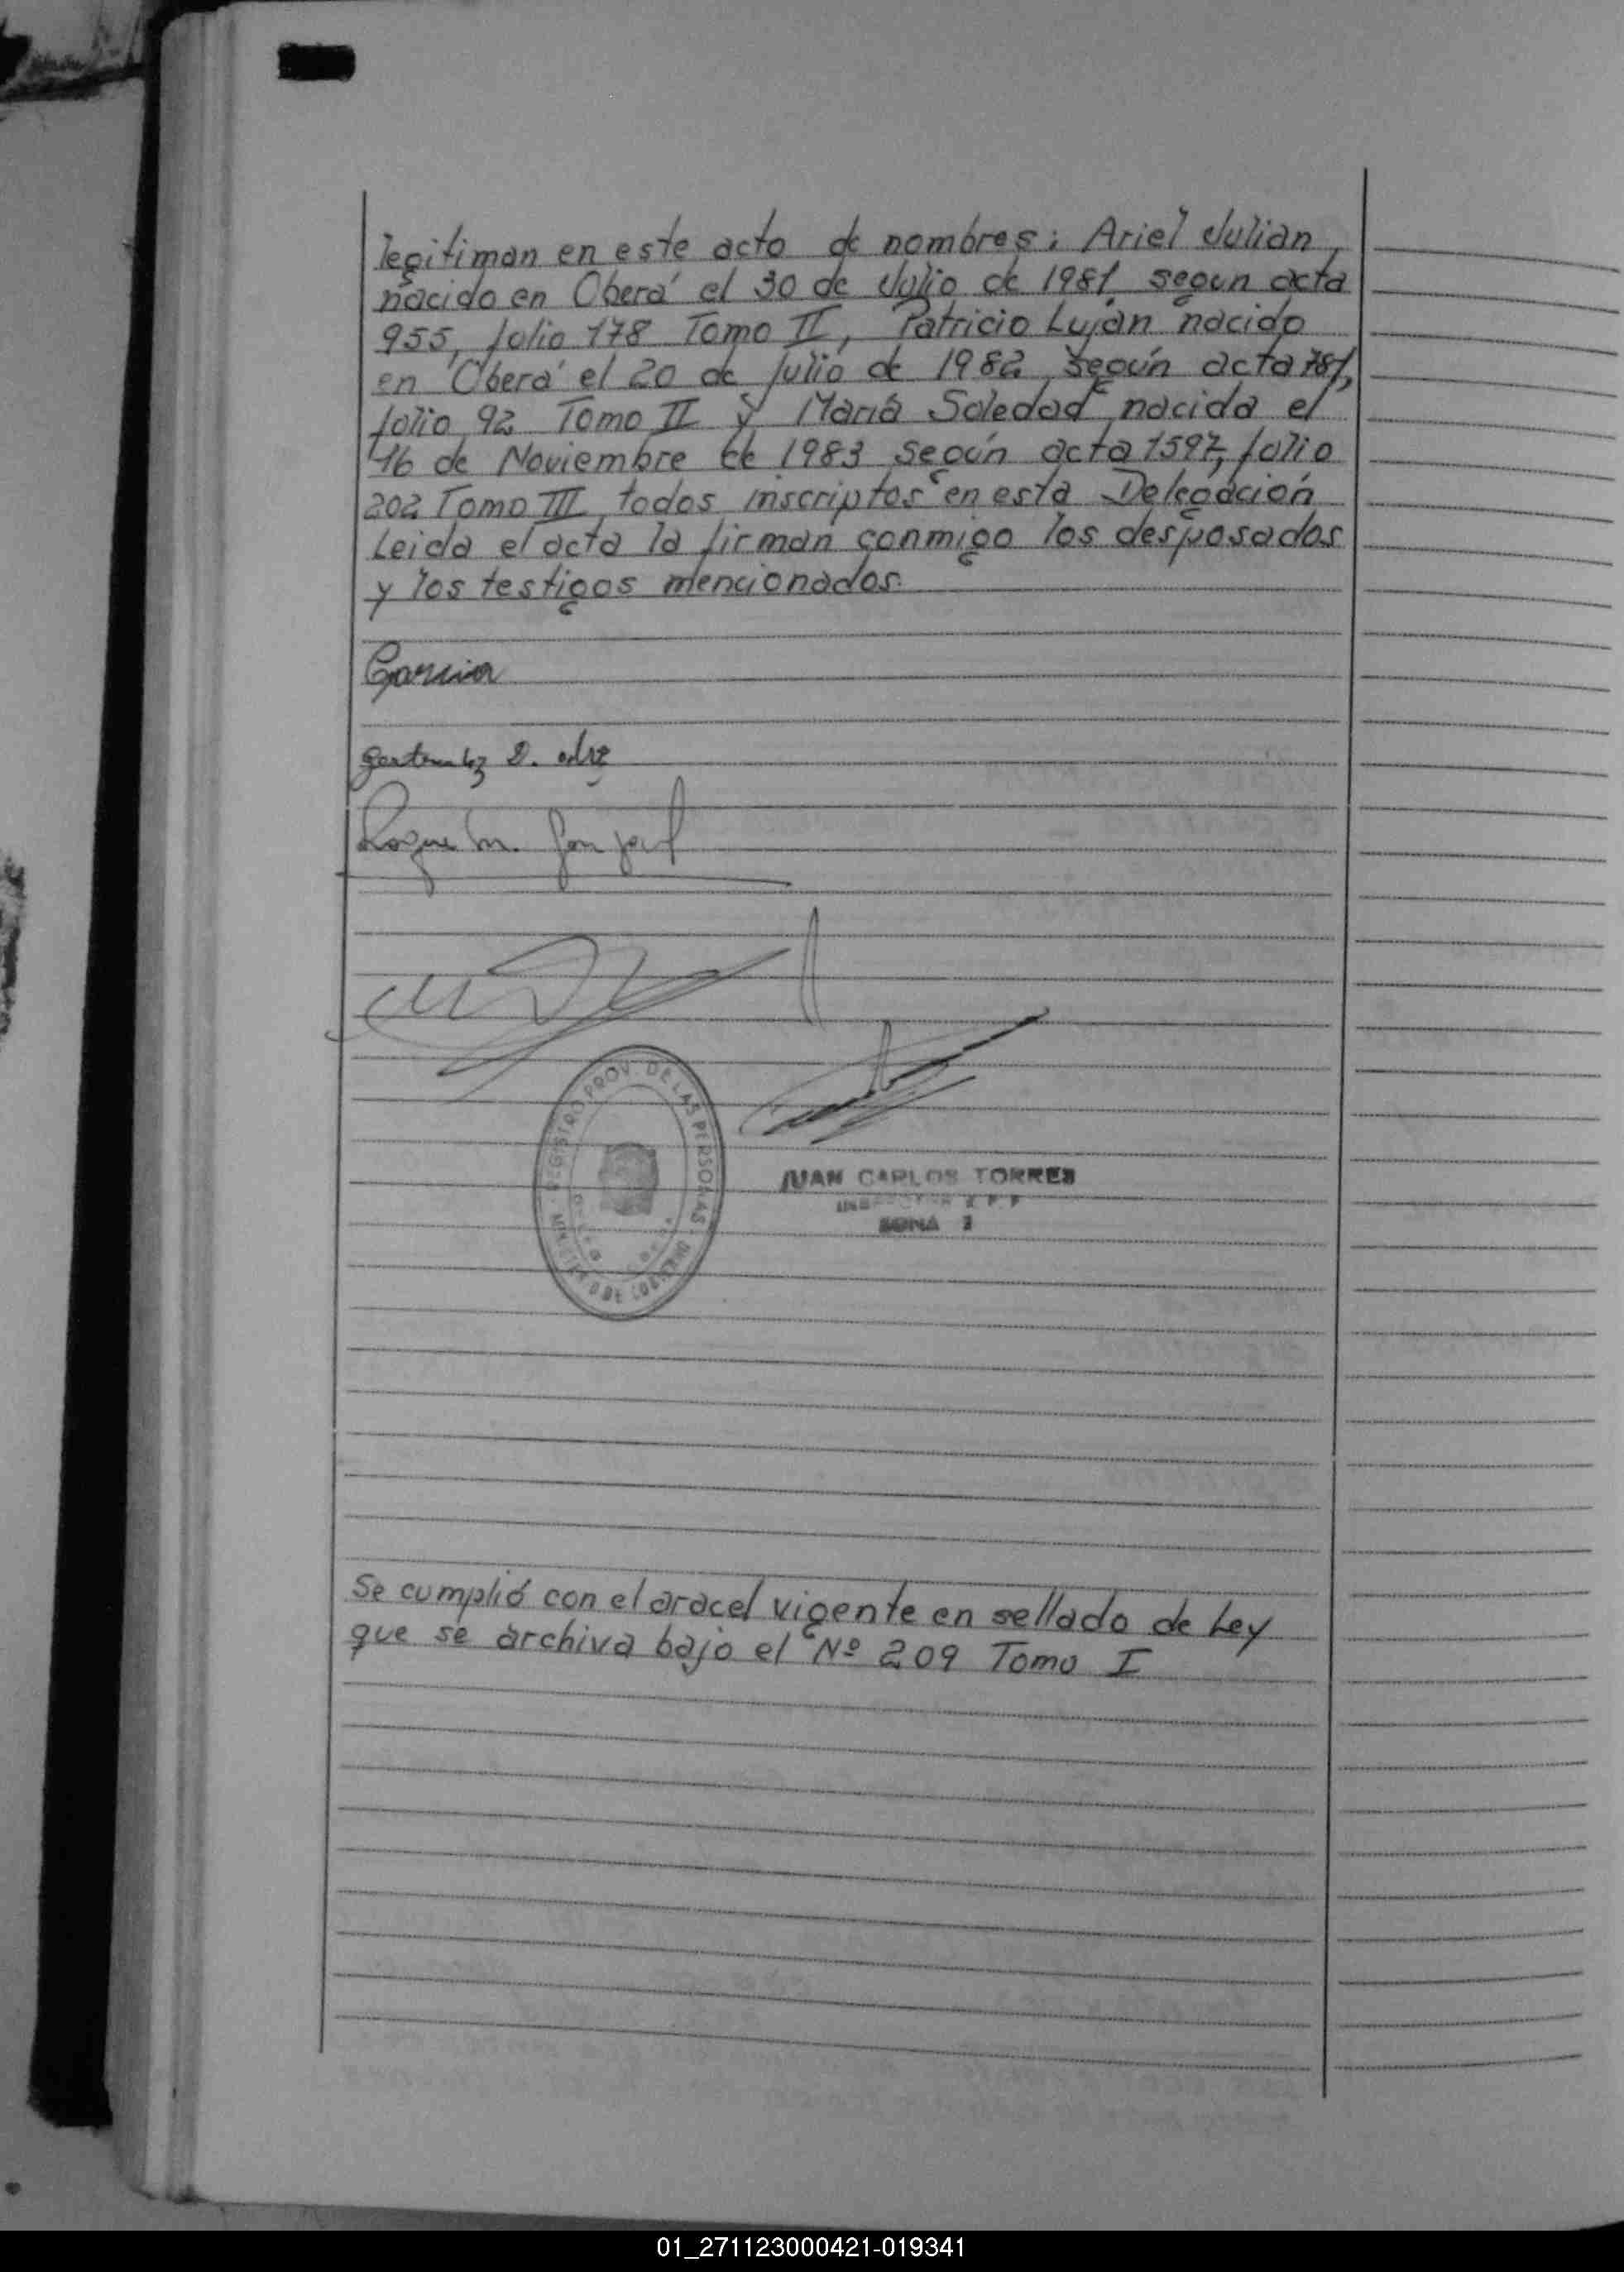 legitiman en este acto de nombres: Ariel Julian,
nacido en Oberá el 30 de Julio de 1981 segun acta
955, folio 178 Tomo II, Patricio Luján nacido
en Oberá el 20 de julio de 1982 según acta 781,
folio 92 Tomo II y María Soledad nacida el
16 de Noviembre de 1983 según acta 1597, folio
202 Tomo III todos inscriptos en esta Delegación
Leida el acta la firman conmigo los desposados
y los testigos mencionados.
Garcia
Roque M.
REGISTRO PROV. DE LAS PERSONAS
MINISTERIO DE GOBIERNO
JUAN CARLOS TORRES
ZONA
Se cumplió con el aracel vigente en sellado de Ley
que se archiva bajo el Nº 209 Tomo I
01_271123000421-019341